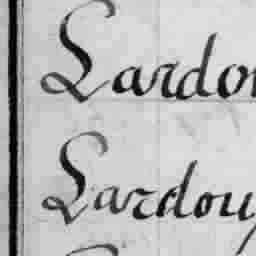 Lardou
Lardouy